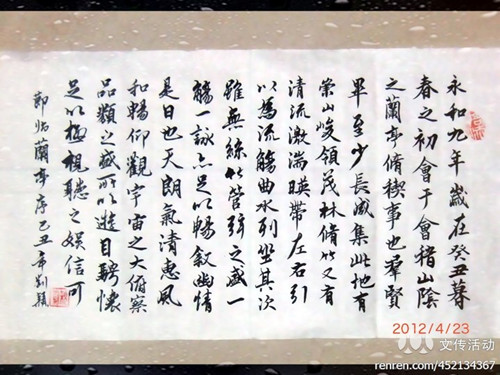 永和九年歲在癸丑暮
春之初會于會稽山陰
之蘭亭脩禊事也羣賢
畢至少長咸集此地有
崇山峻領茂林脩竹又有
清流激湍暎帶左右引
以為流觴曲水列坐其次
雖無絲竹管弦之盛一
觴一詠亦足以暢敘幽情
是日也天朗氣清惠風
和暢仰觀宇宙之大俯察
品類之盛所以遊目騁懷
足以極視聽之娛信可
節臨蘭亭序己丑年刘
2012/4/23
文传活动
renren.com/452134367